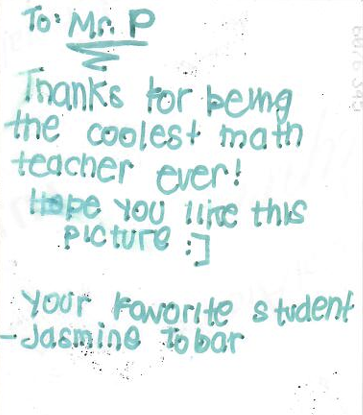 To: Mr. P
Thanks for being
the coolest math
teacher ever!
Hope you like this
picture :]
Your Favorite student
- Jasmine Tobar